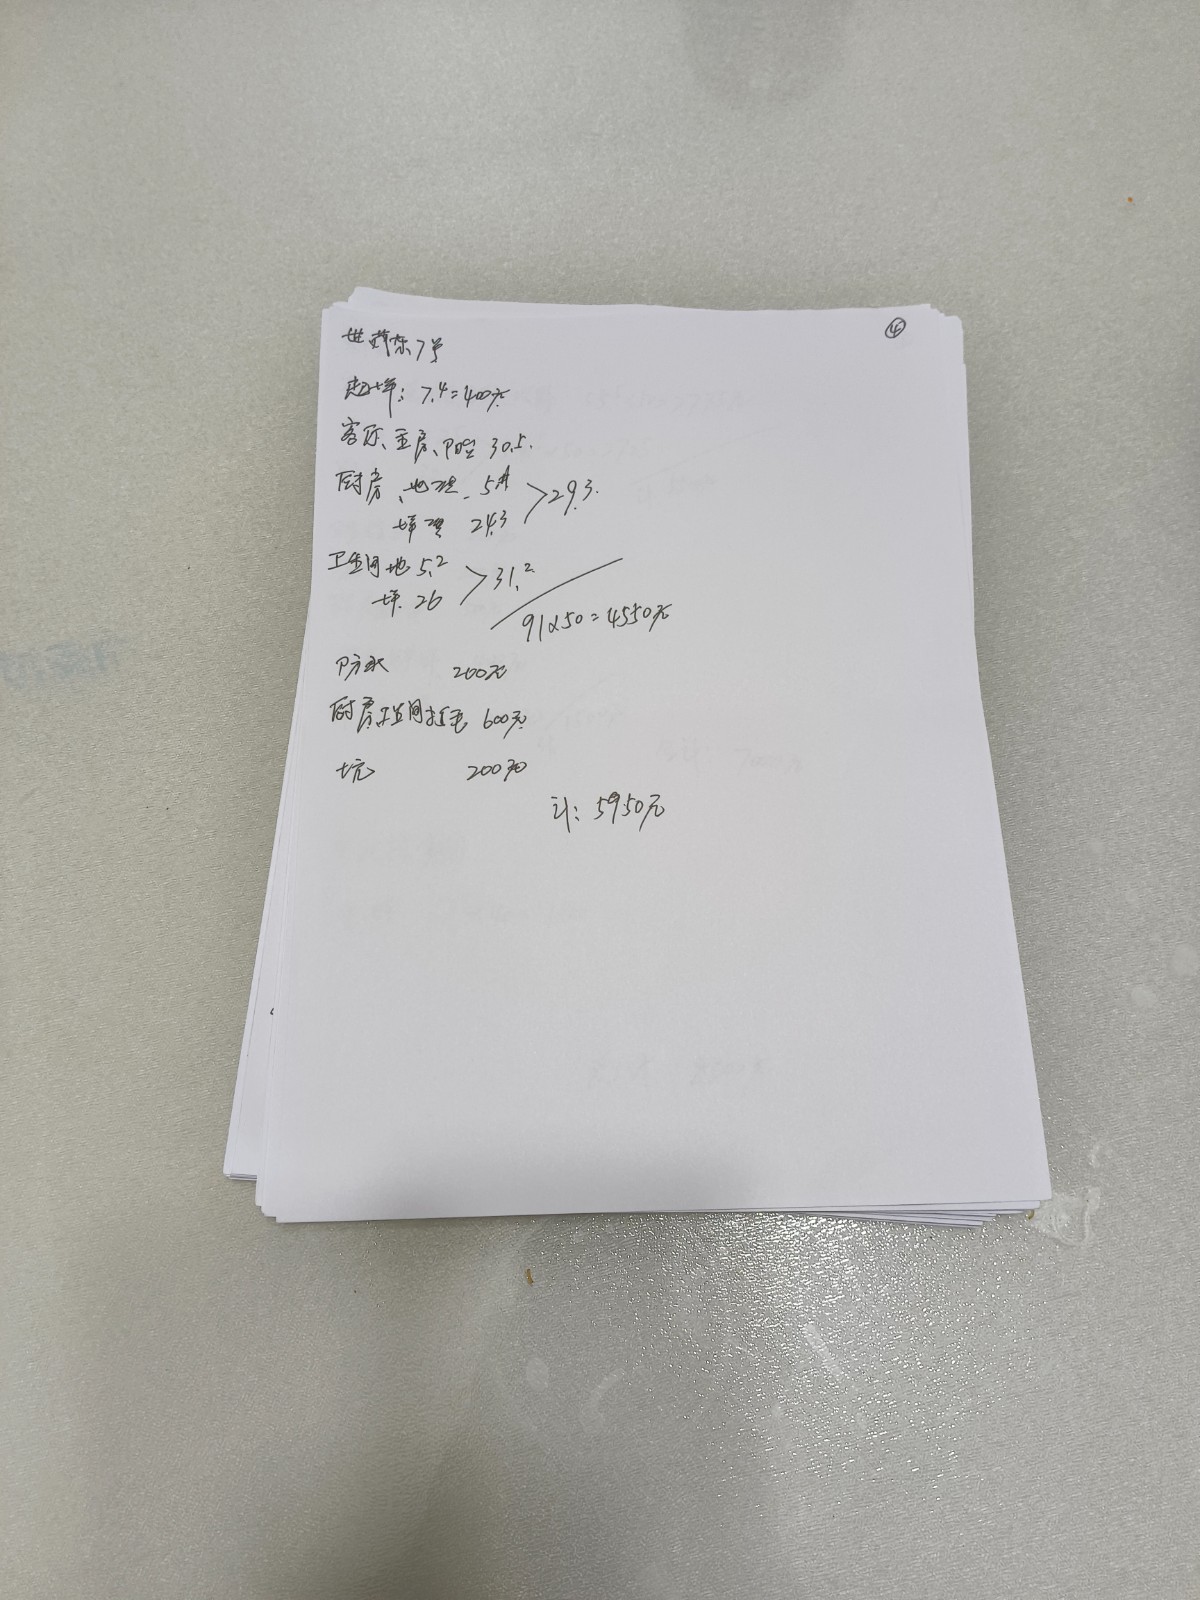 ④
世蘋东7号
起墙: 7.4=400元
客厅、主房、阳台 30.5.
厨房、地砖 5m²
墙砖 24.3 >29.3.
卫生间地 5.2
墙. 26 >31.2
91x50=4550元
防水 200元
厨房卫生间拉毛 600元
坑 200元
计: 5950元